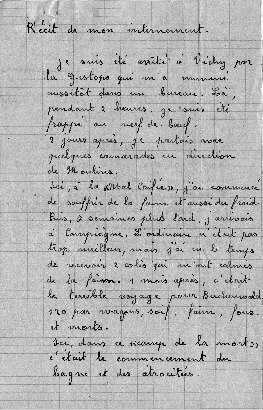 Récit de mon internement.
Je suis été arrêté à Vichy par
la Gestapo qui m'a emmené
aussitôt dans un bureau. Là,
pendant 2 heures, je suis été
frappé au nerf de bœuf.
2 jours après, je partais avec
quelques camarades en direction
de Moulins.
Ici, à la Mal Coiffée, j'ai commencé
de souffrir de la faim et aussi du froid.
Puis, 2 semaines plus tard, j'arrivais
à Compiègne. L'ordinaire n'était pas
trop meilleur, mais j'ai eu le temps
de recevoir 2 colis qui m'ont calmés
de la faim. 1 mois après, c'était
le terrible voyage pour Buchenwald
120 par wagons, soif, faim, fous
et morts.
Ici, dans ce camp de la mort,
c'était le commencement du
bagne et des atrocités.